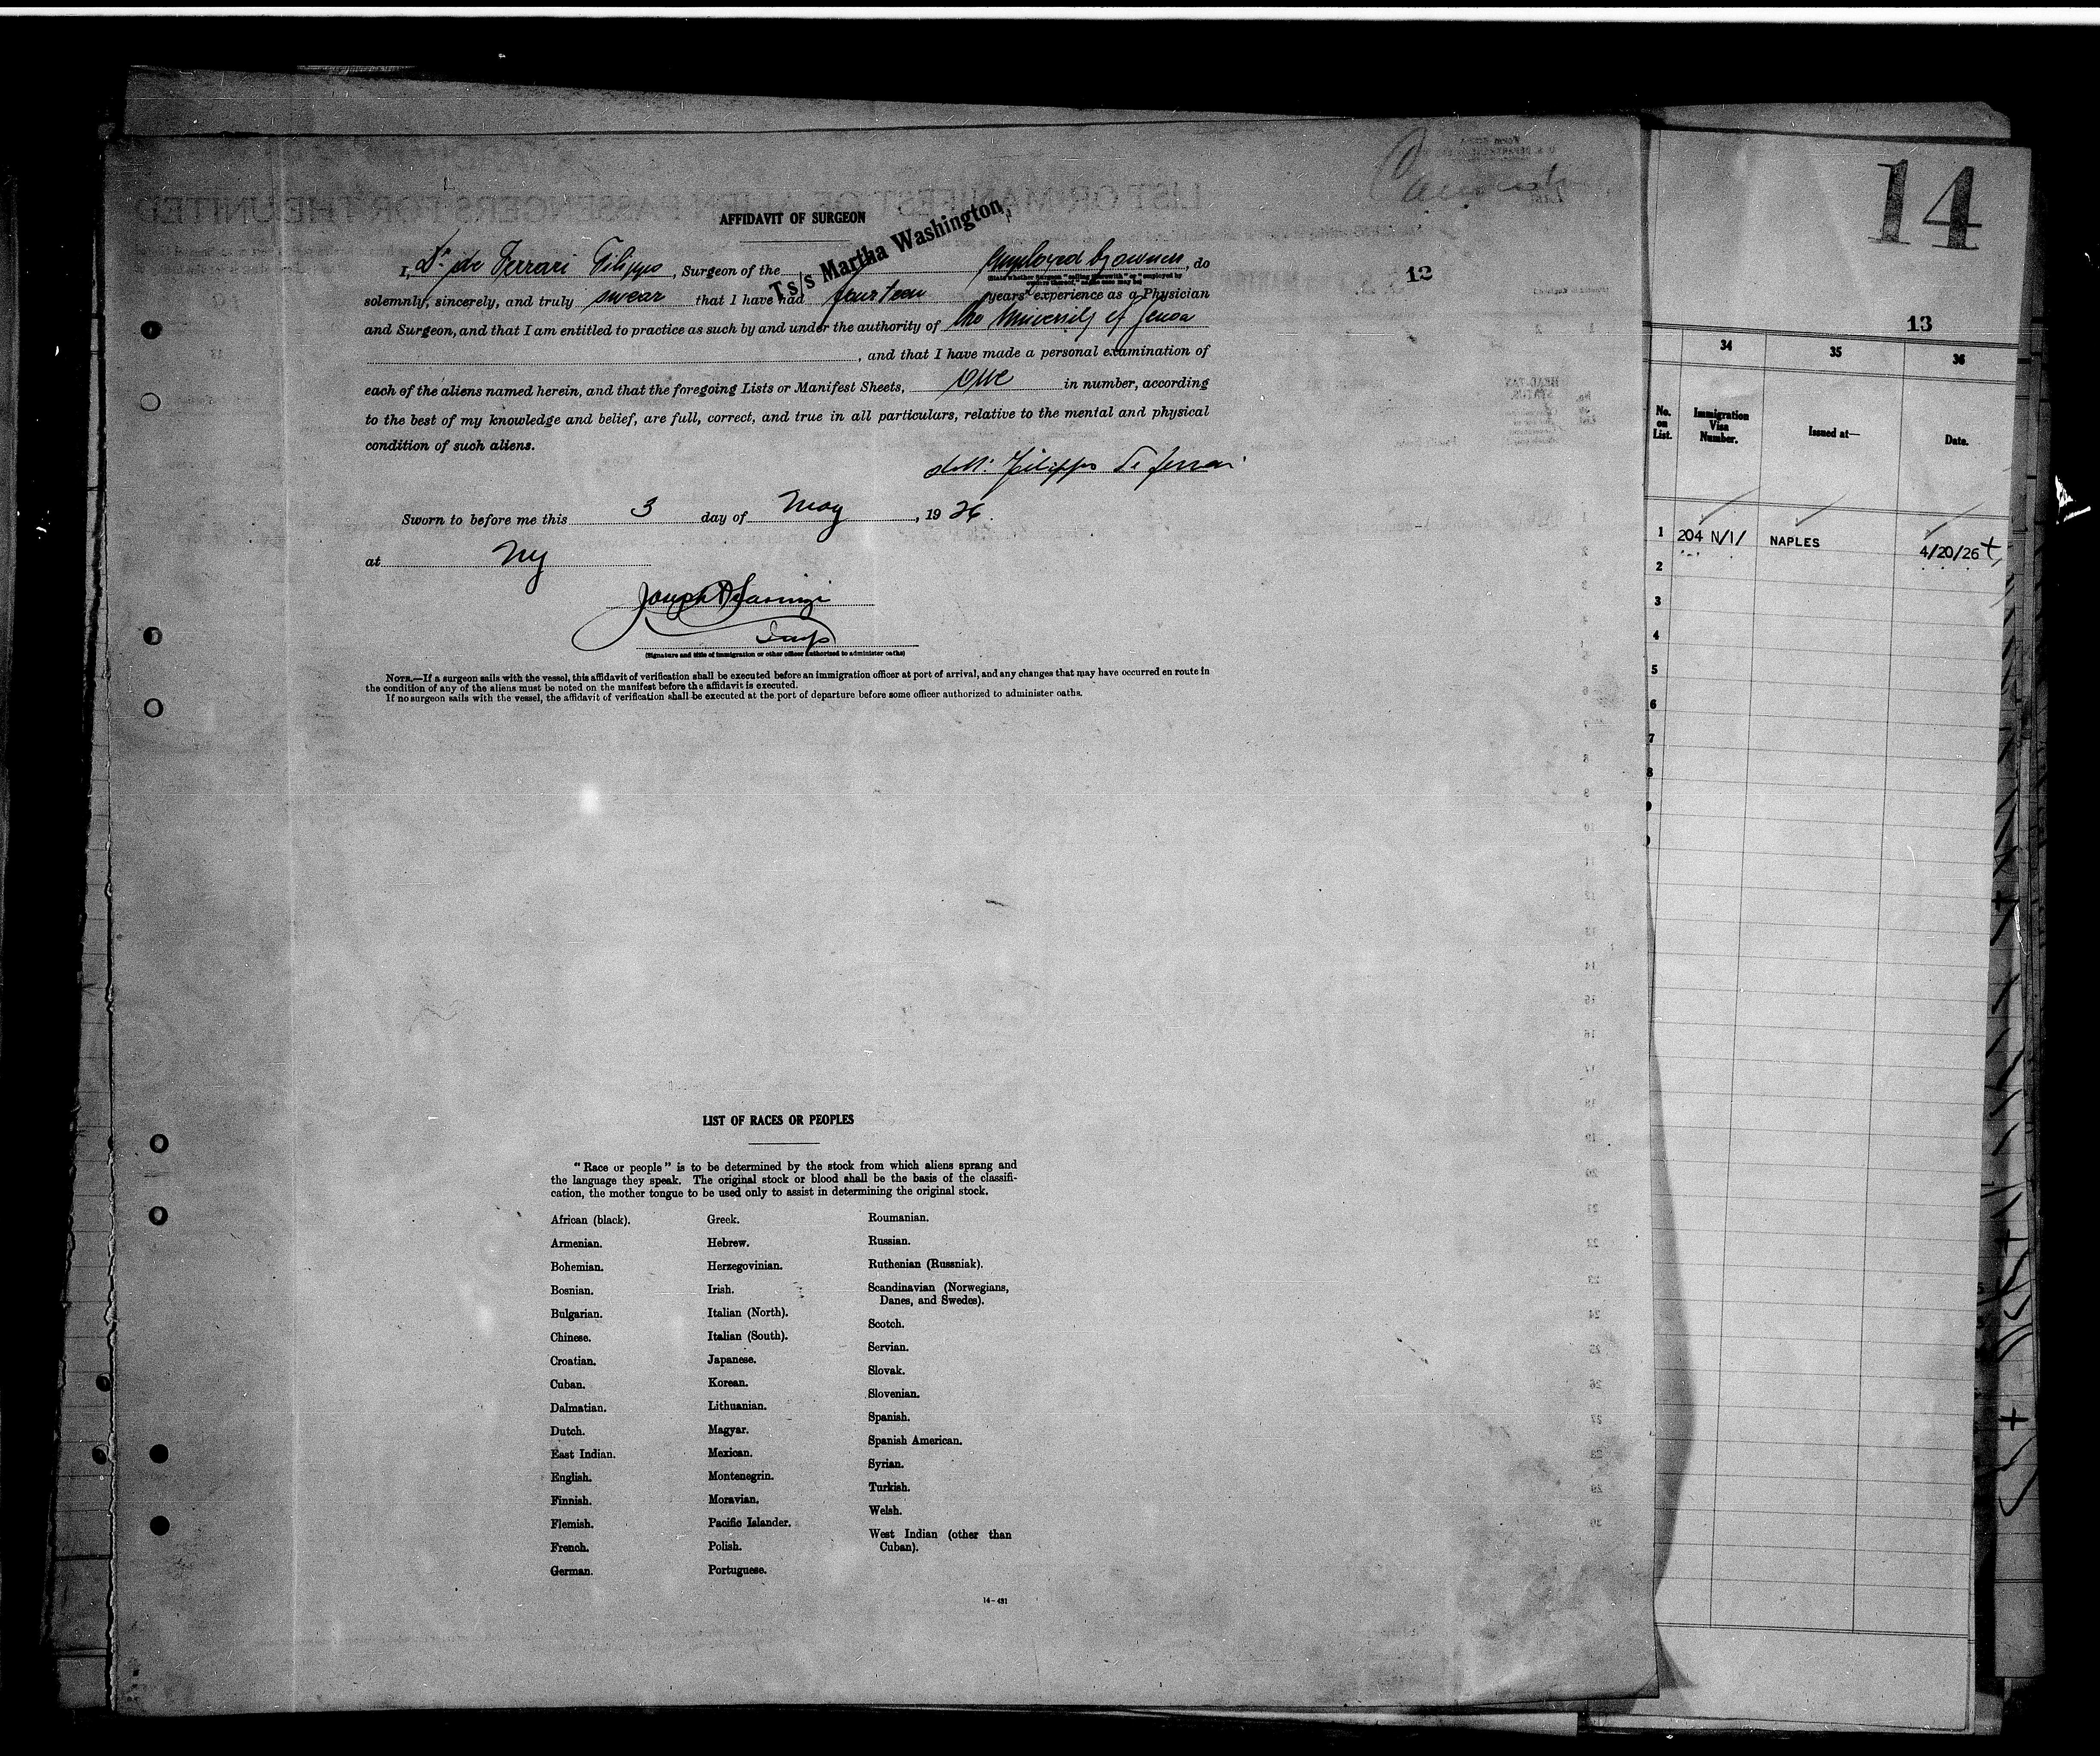 14
12
13
AFFIDAVIT OF SURGEON
I, Dr de Ferrari Filippo, Surgeon of the Ts/s Martha Washington, employed by owners, do
(State whether Surgeon "sailing therewith" or "employed by
owners thereof," as the case may be)
solemnly, sincerely, and truly swear that I have had fourteen years' experience as a Physician
and Surgeon, and that I am entitled to practice as such by and under the authority of the University of Genoa
, and that I have made a personal examination of
each of the aliens named herein, and that the foregoing Lists or Manifest Sheets, One in number, according
to the best of my knowledge and belief, are full, correct, and true in all particulars, relative to the mental and physical
condition of such aliens.
dott: Filippo De Ferrari
Sworn to before me this 3 day of May, 1926.
at Ny
Joseph
Insp
(Signature and title of immigration or other officer authorized to administer oaths)
NOTE.—If a surgeon sails with the vessel, this affidavit of verification shall be executed before an immigration officer at port of arrival, and any changes that may have occurred en route in
the condition of any of the aliens must be noted on the manifest before the affidavit is executed.
If no surgeon sails with the vessel, the affidavit of verification shall be executed at the port of departure before some officer authorized to administer oaths.
LIST OF RACES OR PEOPLES
"Race or people" is to be determined by the stock from which aliens sprang and
the language they speak. The original stock or blood shall be the basis of the classifi-
cation, the mother tongue to be used only to assist in determining the original stock.
African (black).
Armenian.
Bohemian.
Bosnian.
Bulgarian.
Chinese.
Croatian.
Cuban.
Dalmatian.
Dutch.
East Indian.
English.
Finnish.
Flemish.
French.
German.
Greek.
Hebrew.
Herzegovinian.
Irish.
Italian (North).
Italian (South).
Japanese.
Korean.
Lithuanian.
Magyar.
Mexican.
Montenegrin.
Moravian.
Pacific Islander.
Polish.
Portuguese.
Roumanian.
Russian.
Ruthenian (Russniak).
Scandinavian (Norwegians,
Danes, and Swedes).
Scotch.
Servian.
Slovak.
Slovenian.
Spanish.
Spanish American.
Syrian.
Turkish.
Welsh.
West Indian (other than
Cuban).
14-431
34 35 36
No.
on
List.
Immigration
Visa
Number.
Issued at—
Date.
1 204 N/I/ NAPLES 4/20/26
2
3
4
5
6
7
8